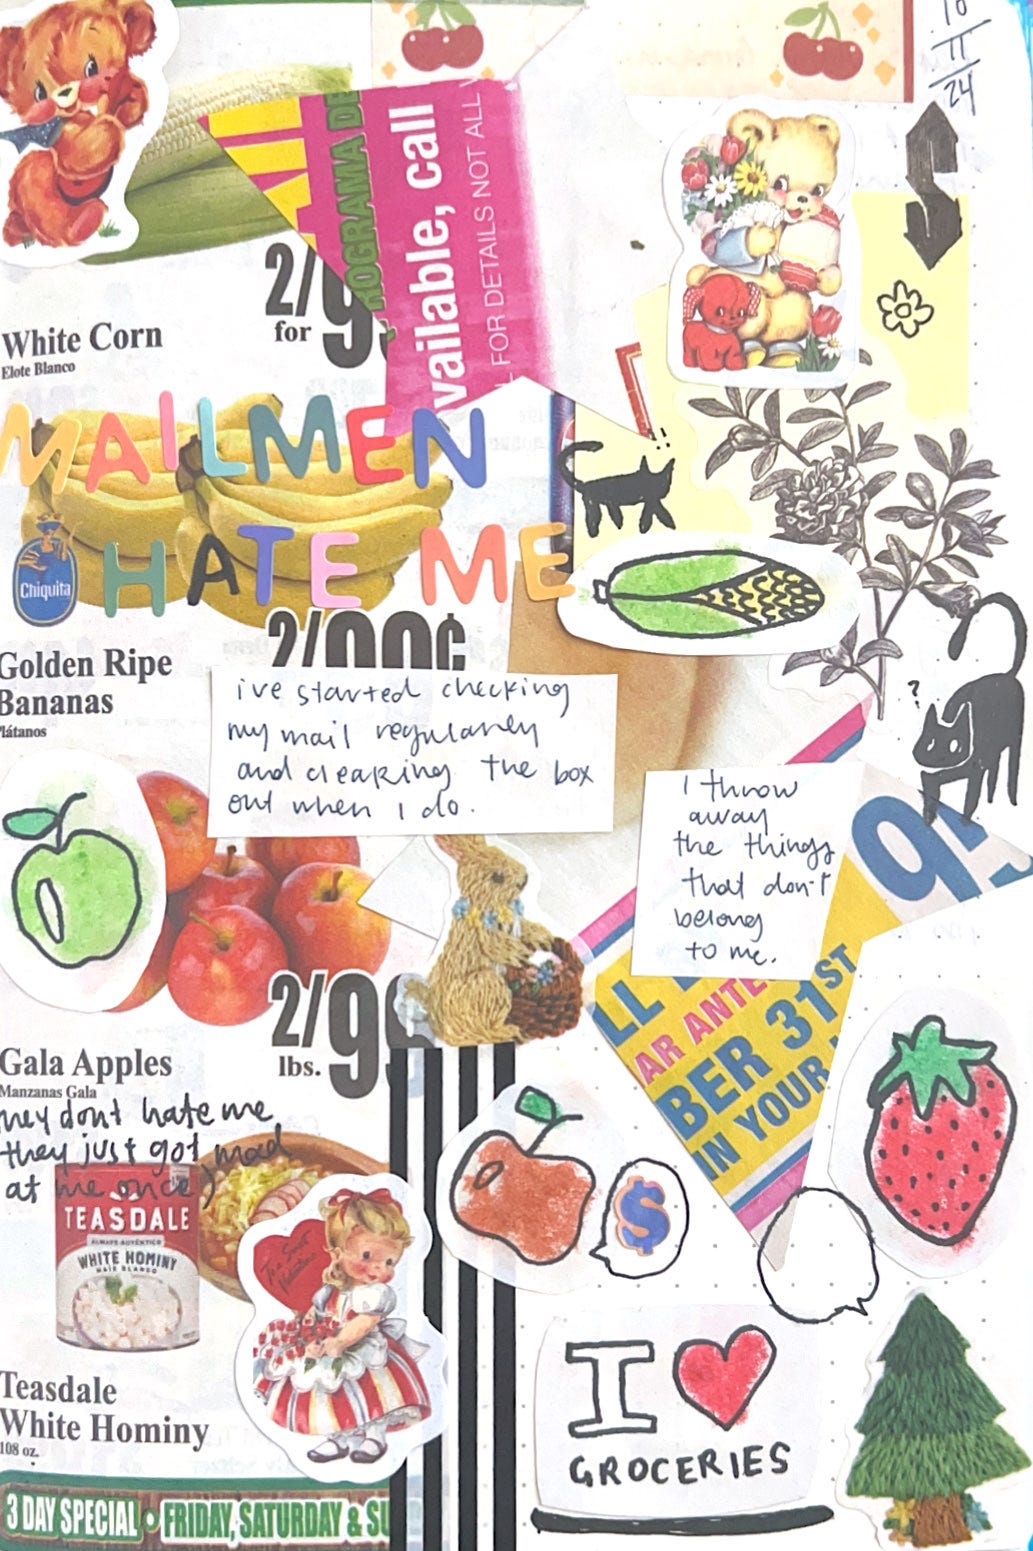 10
11
24
PROGRAMA DE
available, call
FOR DETAILS NOT ALL
2/9
for
White Corn
Elote Blanco
MAILMEN
HATE ME
Chiquita
2/99¢
Golden Ripe
Bananas
Plátanos
i've started checking
my mail regularly
and clearing the box
out when I do.
?
I throw
away
the things
that don't
belong
to me.
99
LL
AR ANTE
BER 31ST
IN YOUR
2/99
lbs.
Gala Apples
Manzanas Gala
they dont hate me
they just got mad
at me once)
TEASDALE
ALWAYS AUTÉNTICO
WHITE HOMINY
MAIZ BLANCO
To a Sweet
Valentine
$
Teasdale
White Hominy
108 oz.
I
GROCERIES
3 DAY SPECIAL • FRIDAY, SATURDAY & SU